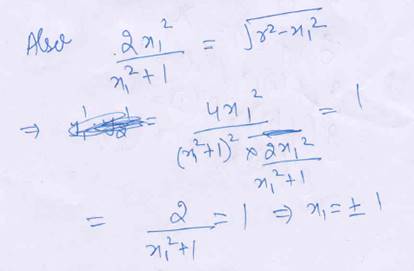 Also 2x₁²/(x₁²+1) = √(r²-x₁²)
⇒ = 4x₁²/((x₁²+1)² × 2x₁²/(x₁²+1)) = 1
= 2/(x₁²+1) = 1 ⇒ x₁ = ± 1